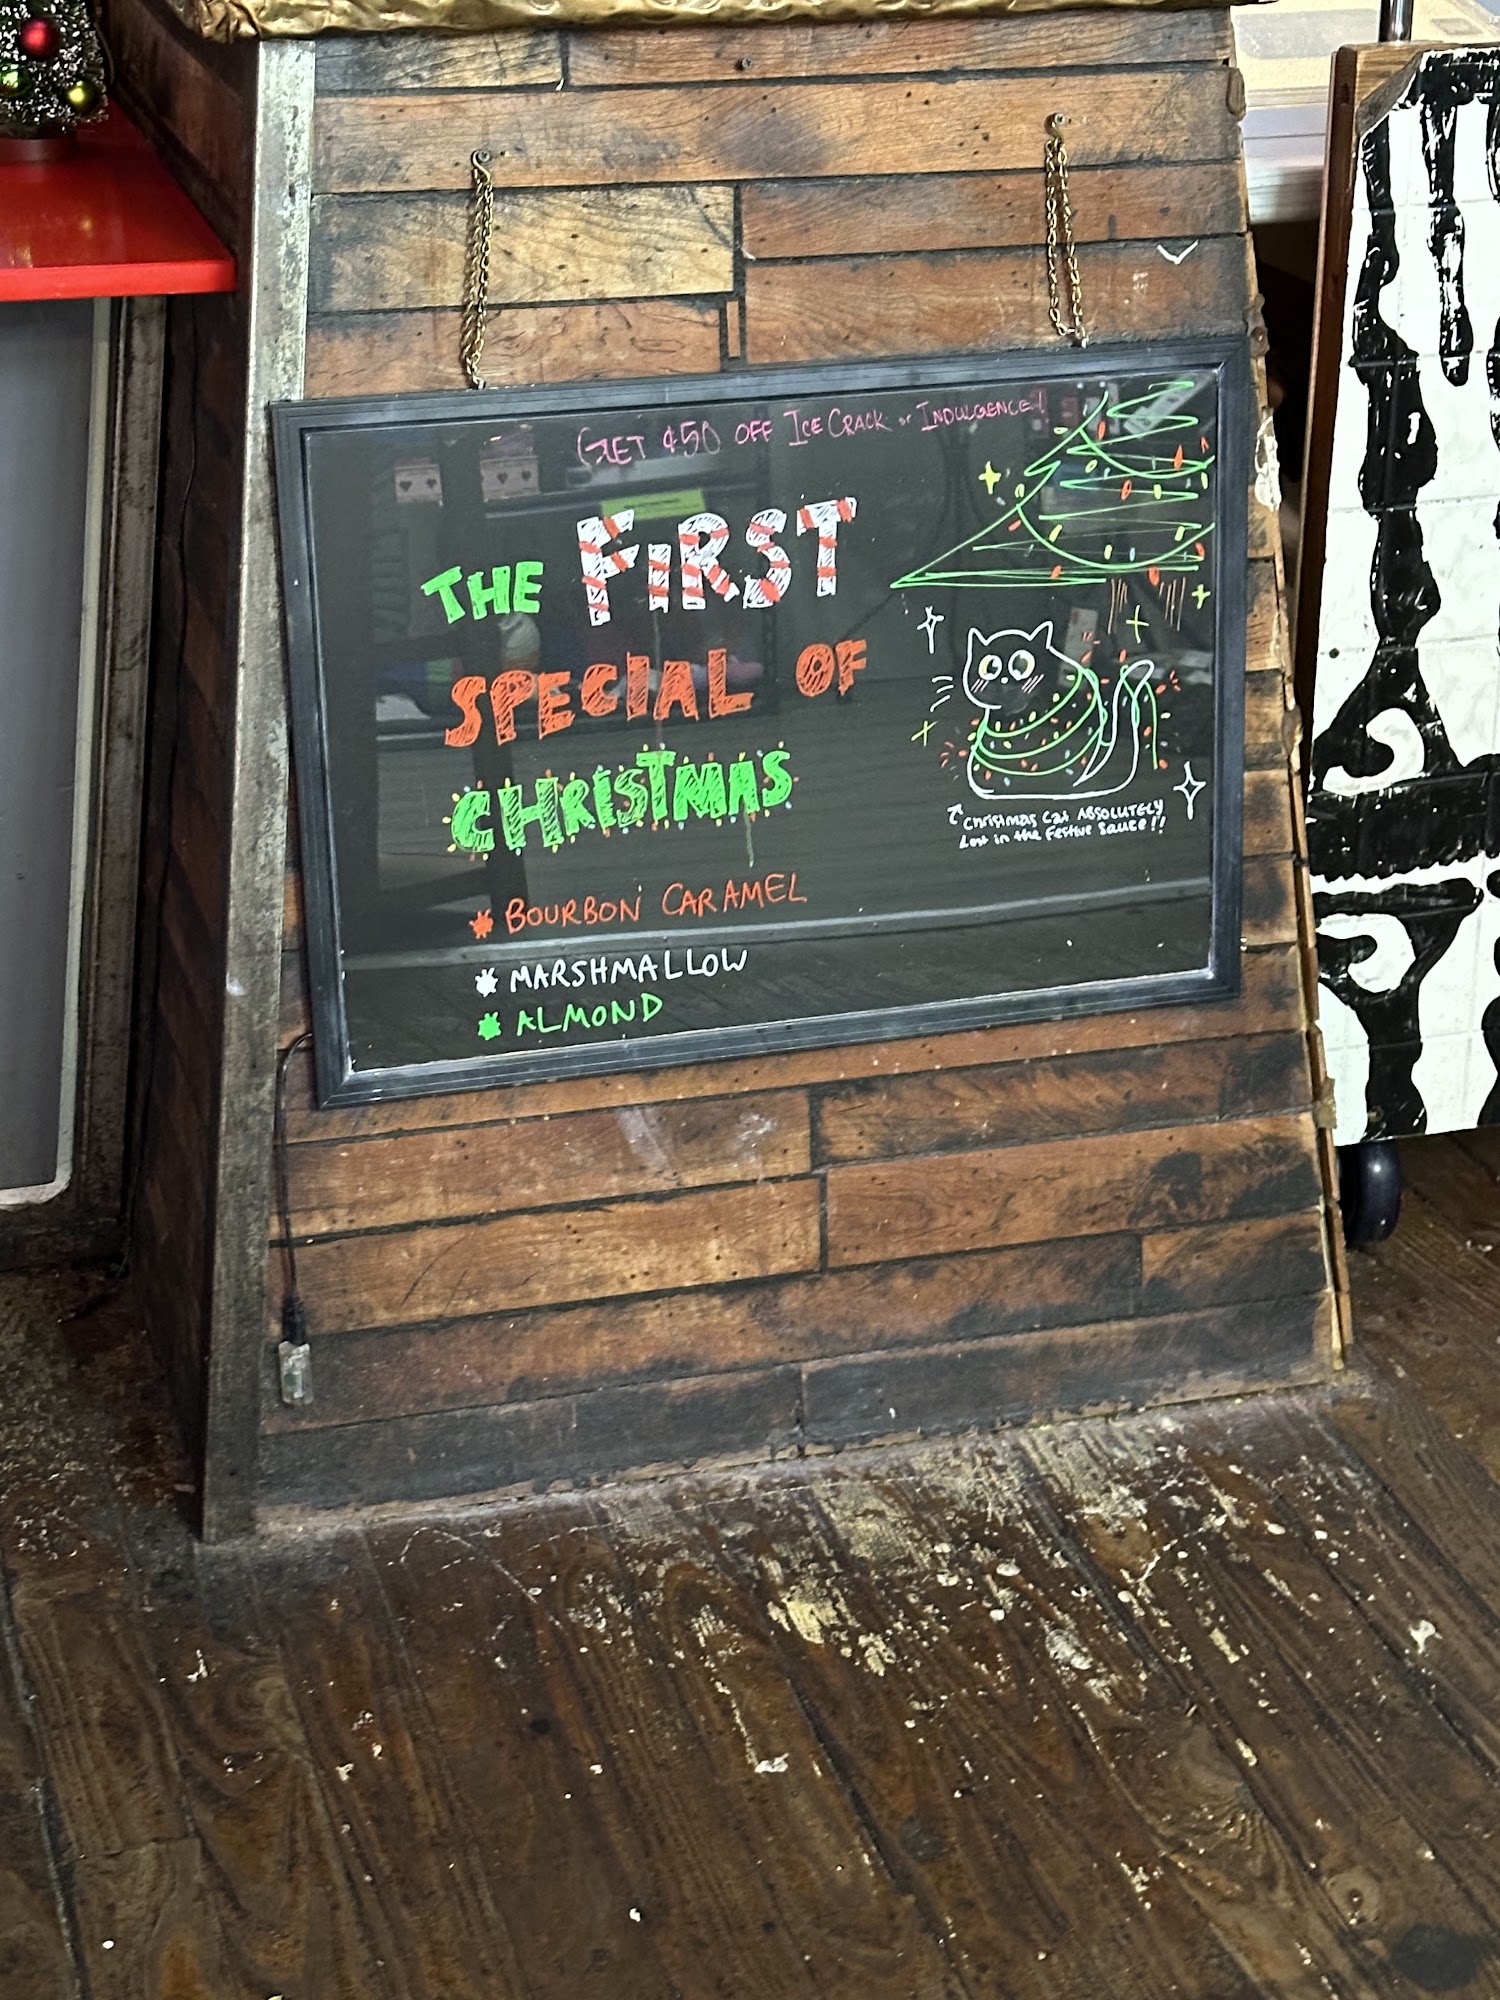 GET $50 OFF ICE CRACK or INDULGENCE!
THE FIRST
SPECIAL OF
CHRISTMAS
* BOURBON CARAMEL
* MARSHMALLOW
* ALMOND
Christmas Cat ABSOLUTELY
Lost in the Festive Sauce!!